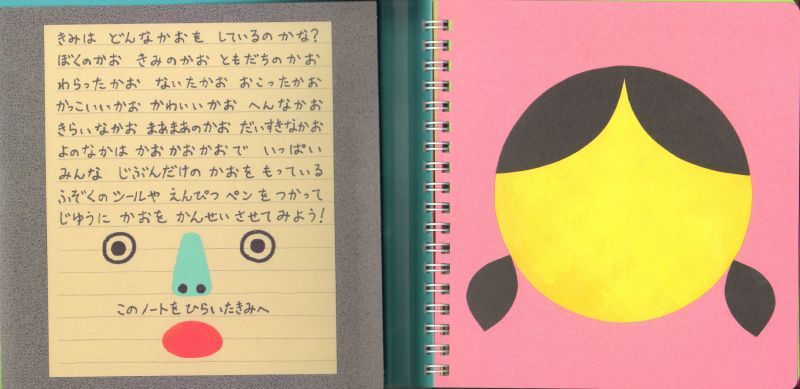 きみは どんなかおを しているのかな?
ぼくのかお きみのかお ともだちのかお
わらったかお ないたかお おこったかお
かっこいいかお かわいいかお へんなかお
きらいなかお まあまあのかお だいすきなかお
よのなかは かおかおかおで いっぱい
みんな じぶんだけの かおを もっている
ふぞくのシールや えんぴつ ペンを つかって
じゆうに かおを かんせいさせてみよう!
このノートをひらいたきみへ